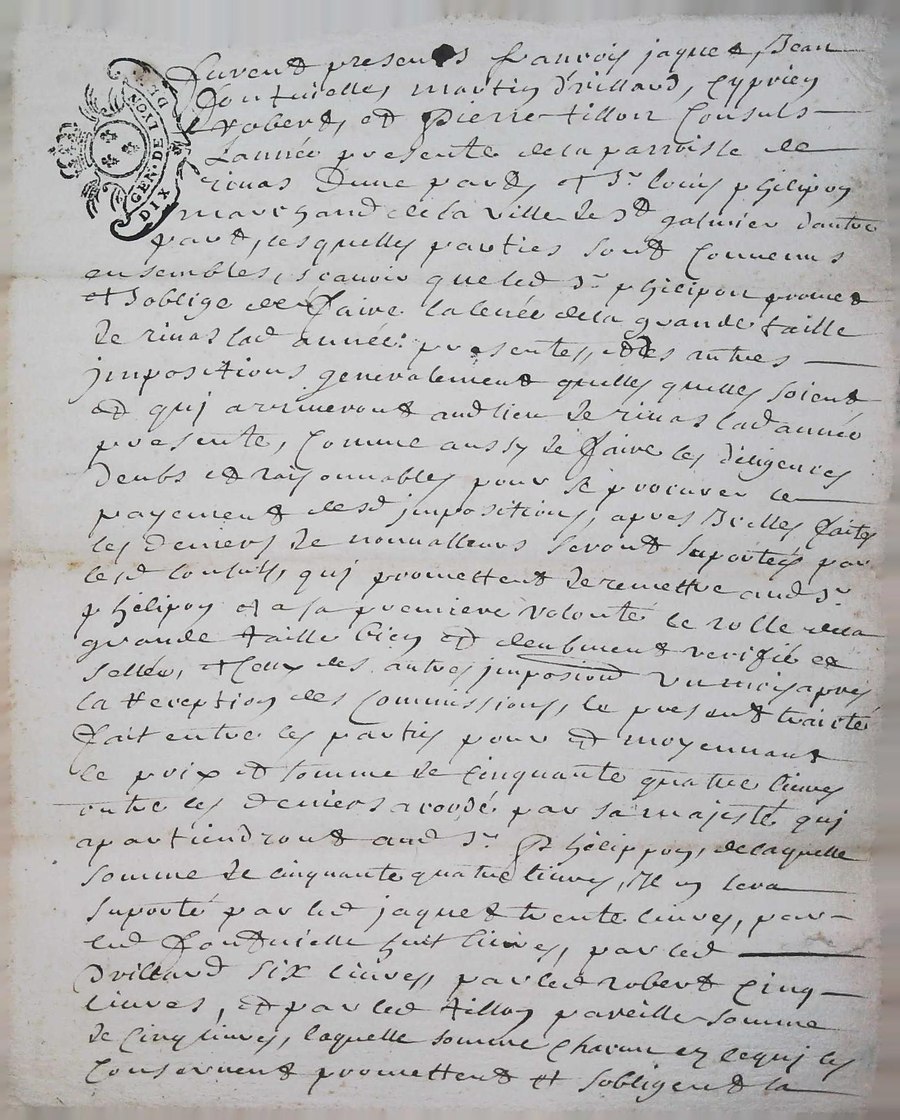 GEN. DE LYON
DIX DE
furent presents francois jaquet, Jean
fontvielle, martin drillard, Cyprien
robert, et Pierre tillon Consuls
Lannée presente de la parroisse de
rivas Dune part, et Sr. louis phelipon
marchand de la ville de St galmier dautre
part, lesquelles parties sont Convenus
ensembles, scavoir que led Sr. phelipon promet
et soblige de faire la levée de la grande taille
de rivas lad année presente, et des autres
jmpositions generalement quelles quelles soient
et qui arriveront aud lieu de rivas lad année
presente, Comme aussy de faire les diligences
deubs et raisonnables pour se procurer le
payement desd jmpositions, apres Icelles faites
les deniers de nonvalleurs seront suportés par
lesd Consuls, qui promettent de remettre aud Sr.
phelipon et a sa premiere volonté le rolle de la
grande taille bien et deubment verifié et
sellée, et Ceux des autres jmposions un mois apres
la Reception des Commissions, le present traicté
fait entre les parties pour et moyennant
le prix et somme de Cinquante quatre livres
outre les deniers acordé par sa majesté qui
apartiendront aud Sr. Phelippon, de laquelle
somme de cinquante quatre livres, Il en sera
suporté par led jaquet trente livres, par
led fontvielle huit livres, par led
Drillard six livres, par led robert Cinq
livres, et par led tillon pareille somme
de Cinq livres, laquelle somme Chacun en ce qui les
Consernent promettent et sobligent la